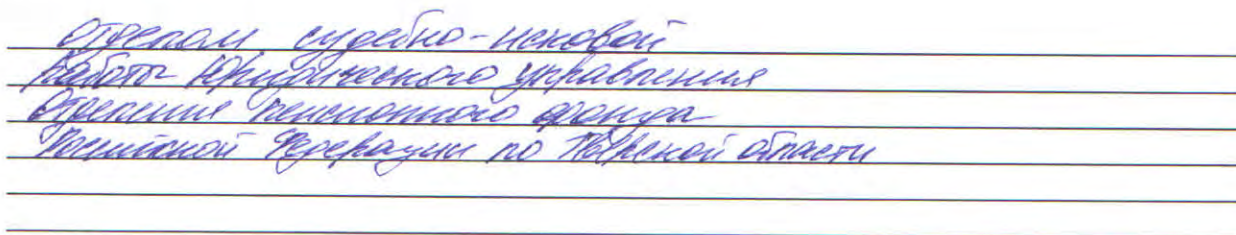 отделом судебно-исковой
работы Юридического управления
Отделения пенсионного фонда
Российской Федерации по Тверской области